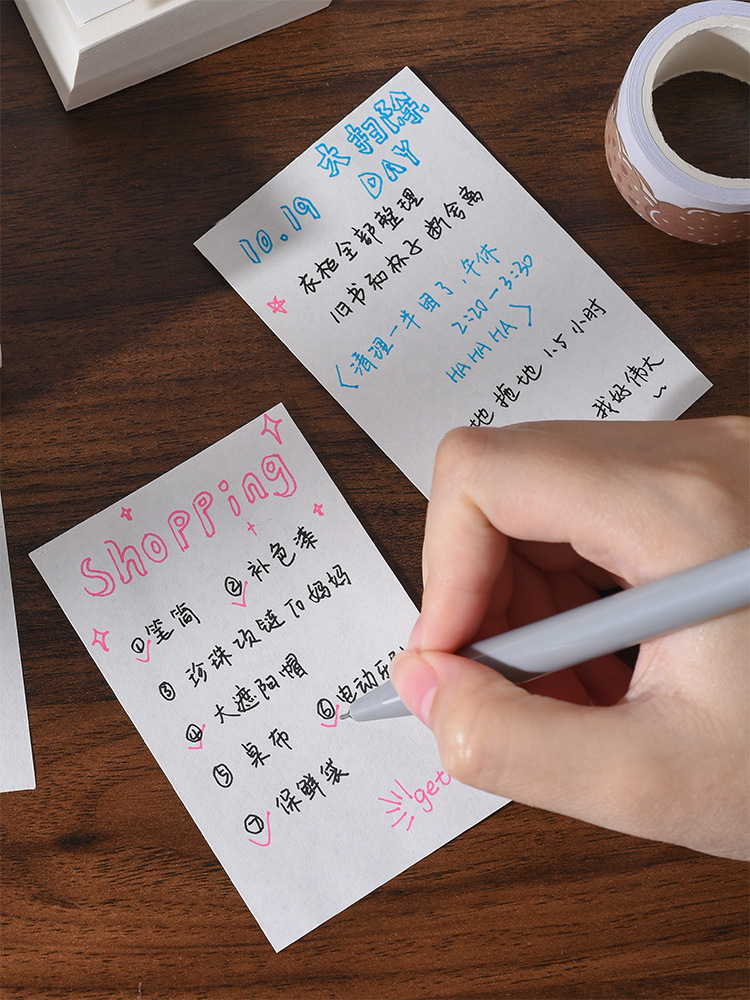 大扫除
10.19 DAY
衣柜全部整理
旧书和杯子断舍离
(清理一半困了,午休
2:20-3:20
HA HA HA)
地拖地 1.5小时
我好伟大
Shopping
①笔筒 ②补色漆
③珍珠项链To妈妈
④大遮阳帽
⑤桌布 ⑥电动牙
⑦保鲜袋
get